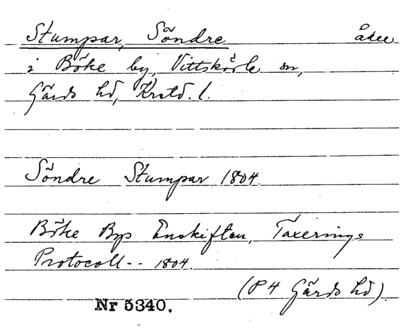 Stumpar, Söndre åker
i Böke by, Vittskövle sn,
Gärds hd, Krstd. l.
Söndre Stumpar 1804
Böke Bys Enskiften, Taxerings
Protocoll-- 1804.
(P4 Gärds hd)
Nr 5340.